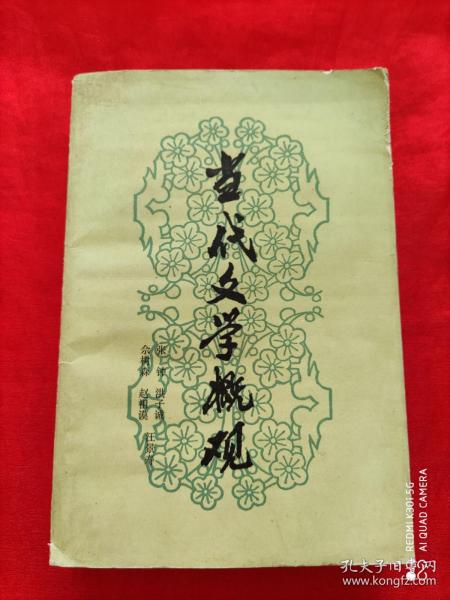 当代文学概观
张钟 洪子诚
佘树森 赵祖谟 汪景寿
REDMI K30I 5G
AI QUAD CAMERA
孔夫子旧书网
kongfz.com